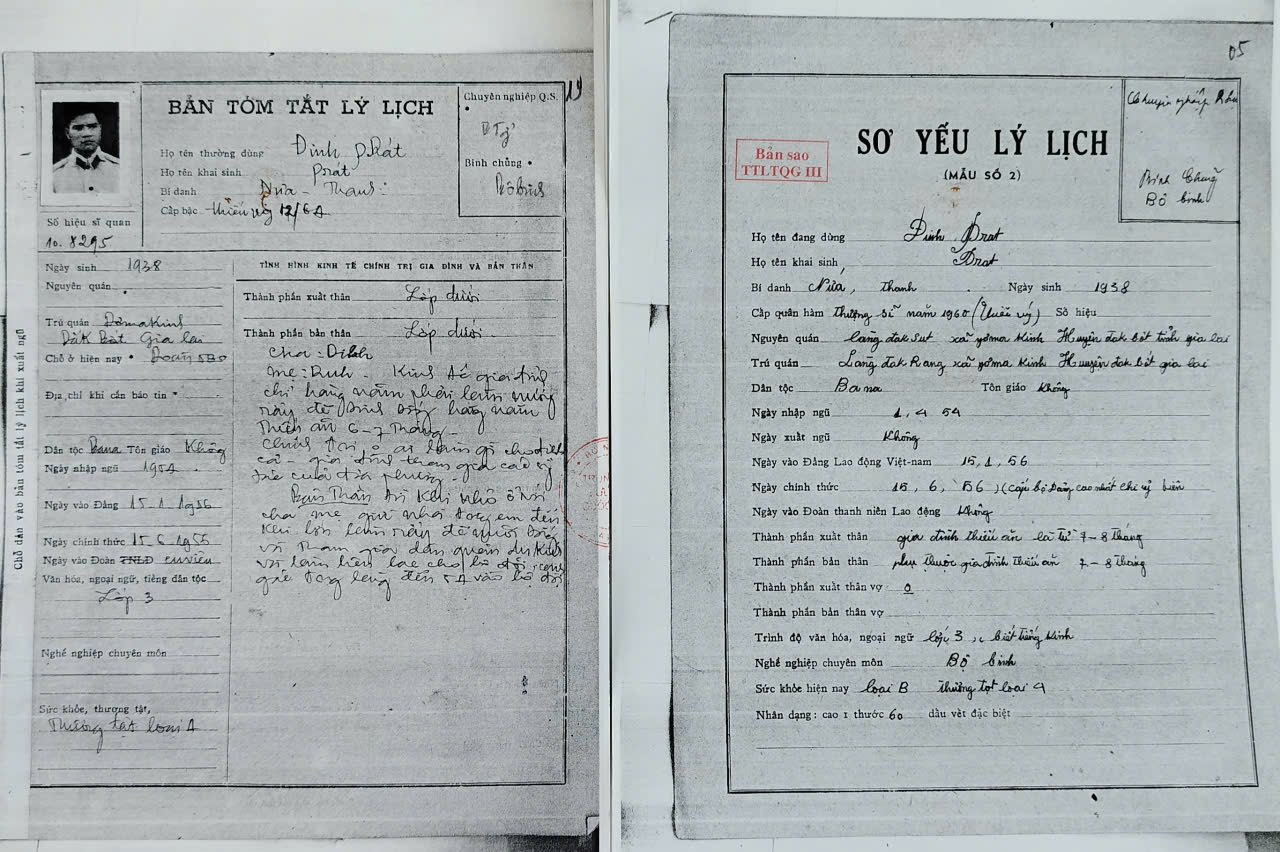 19
BẢN TÓM TẮT LÝ LỊCH
Họ tên thường dùng Đinh prát
Họ tên khai sinh prát
Bí danh Nứa - Thanh
Cấp bậc thiếu úy 12/6A
Chuyên nghiệp Q.S.
Binh chủng
Bộ binh
Số hiệu sĩ quan
10. 8295
Ngày sinh 1938
Nguyên quán
Trú quán
Gia lai
Chỗ ở hiện nay Đoàn 580
Địa chỉ khi cần báo tin
Dân tộc Bana Tôn giáo Không
Ngày nhập ngũ 1954
Ngày vào Đảng 15-1 1956
Ngày chính thức 15-6 1956
Ngày vào Đoàn TNLĐ
Văn hóa, ngoại ngữ, tiếng dân tộc
Lớp 3
Nghề nghiệp chuyên môn
Sức khỏe, thương tật,
Thương tật loại A
Chỗ dán vào bản tóm tắt lý lịch khi xuất ngũ
TÌNH HÌNH KINH TẾ CHÍNH TRỊ GIA ĐÌNH VÀ BẢN THÂN
Thành phần xuất thân Lớp dưới
Thành phần bản thân Lớp dưới
Cha: Dinh
Mẹ: Kinh tế gia đình
chỉ hàng năm phải làm nương
rẫy để sinh sống hàng năm
thiếu ăn 6-7 tháng
gia đình tham gia
của địa phương
Bản thân khi nhỏ ở với
cha mẹ
khi lớn làm rẫy để nuôi sống
và tham gia dân quân du kích
và làm liên lạc cho bộ đội
đến 54 vào bộ đội
05
SƠ YẾU LÝ LỊCH
(MẪU SỐ 2)
Bản sao
TTLTQG III
Chuyên nghiệp
Binh Chủng
Bộ binh
Họ tên đang dùng Đinh Prat
Họ tên khai sinh Prat
Bí danh Nứa, Thanh Ngày sinh 1938
Cấp quân hàm thượng sĩ năm 1960 (thiếu úy) Số hiệu
Nguyên quán làng đak sut xã yơma Kinh Huyện đak bớt tỉnh gia lai
Trú quán Lang đak Rang xã yơma Kinh Huyện đak bớt gia lai
Dân tộc Bana Tôn giáo Không
Ngày nhập ngũ 1, 4 54
Ngày xuất ngũ Không
Ngày vào Đảng Lao động Việt-nam 15, 1, 56
Ngày chính thức 15, 6, 56, (cấp bộ Đảng cao nhất chi ủy viên
Ngày vào Đoàn thanh niên Lao động Không
Thành phần xuất thân gia đình thiếu ăn là từ 7-8 tháng
Thành phần bản thân phụ thuộc gia đình thiếu ăn 7-8 tháng
Thành phần xuất thân vợ 0
Thành phần bản thân vợ
Trình độ văn hóa, ngoại ngữ lớp 3, biết tiếng Kinh
Nghề nghiệp chuyên môn Bộ binh
Sức khỏe hiện nay loại B thương tật loại 4
Nhân dạng: cao 1 thước 60 dấu vết đặc biệt